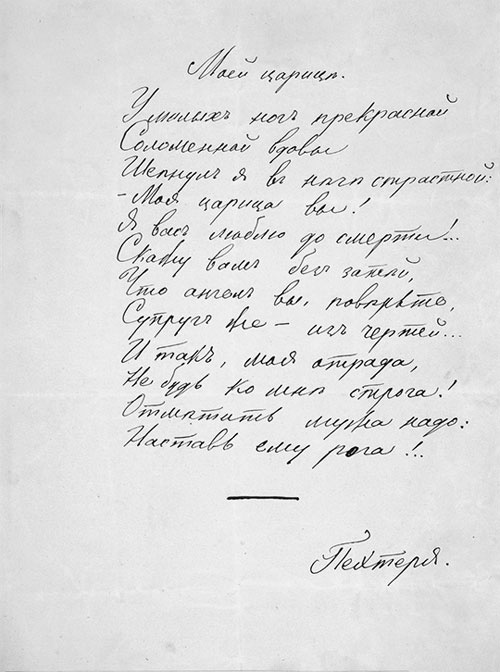 Моей царицѣ.
У милыхъ ногъ прекрасной
Соломенной вдовы
Шепнулъ я въ нѣгѣ страстной:
- Моя царица вы!
Я васъ люблю до смерти!...
Скажу вамъ безъ затѣй,
Что ангелъ вы, повѣрьте,
Супругъ же – изъ чертей...
И такъ, моя отрада,
Не будь ко мнѣ строга!
Отмѣтить мужа надо:
Наставь ему рога!..
Пехтеря.